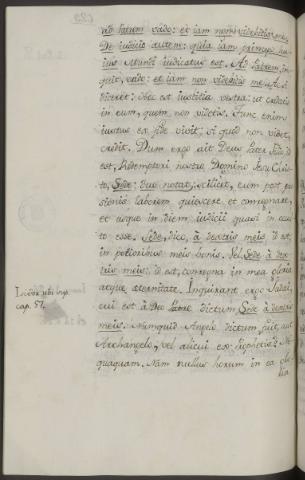 ad Patrem vado: et iam non videbitis me,
De iudicio autem: quia iam princeps hu-
ius Mundi iudicatus est. Ad Patrem, in-
quit, vado: et iam non videbitis me. Ac si
diceret: hæc est iustitia vestra: ut credatis
in eum, quem non videtis. Tunc enim
iustus ex fide vivit, si quod non videt,
credit. Dum ergo ait Deus Pater Filio, id
est, Redemptori nostro Domino Iesu Chris-
to, Sede: duo notat, scilicet, eum post pas-
sionis laborem quiescere et conregnare,
et usque in diem iudicii quasi in occul-
to esse. Sede, dico, a dextris meis, id est,
in potioribus meis bonis. Vel Sede a dex-
tris meis: id est, conregna in mea gloria
atque æternitate. Inquirant ergo Iudæi,
cui est a Deo Patre dictum Sede a dextris
meis. Numquid Angelo dictum fuit, aut
Archangelo, vel alicui ex Prophetis? Ne-
quaquam. Nam nullus horum in ea glo-
ria
Isidor. ubi sup.
cap. 57.